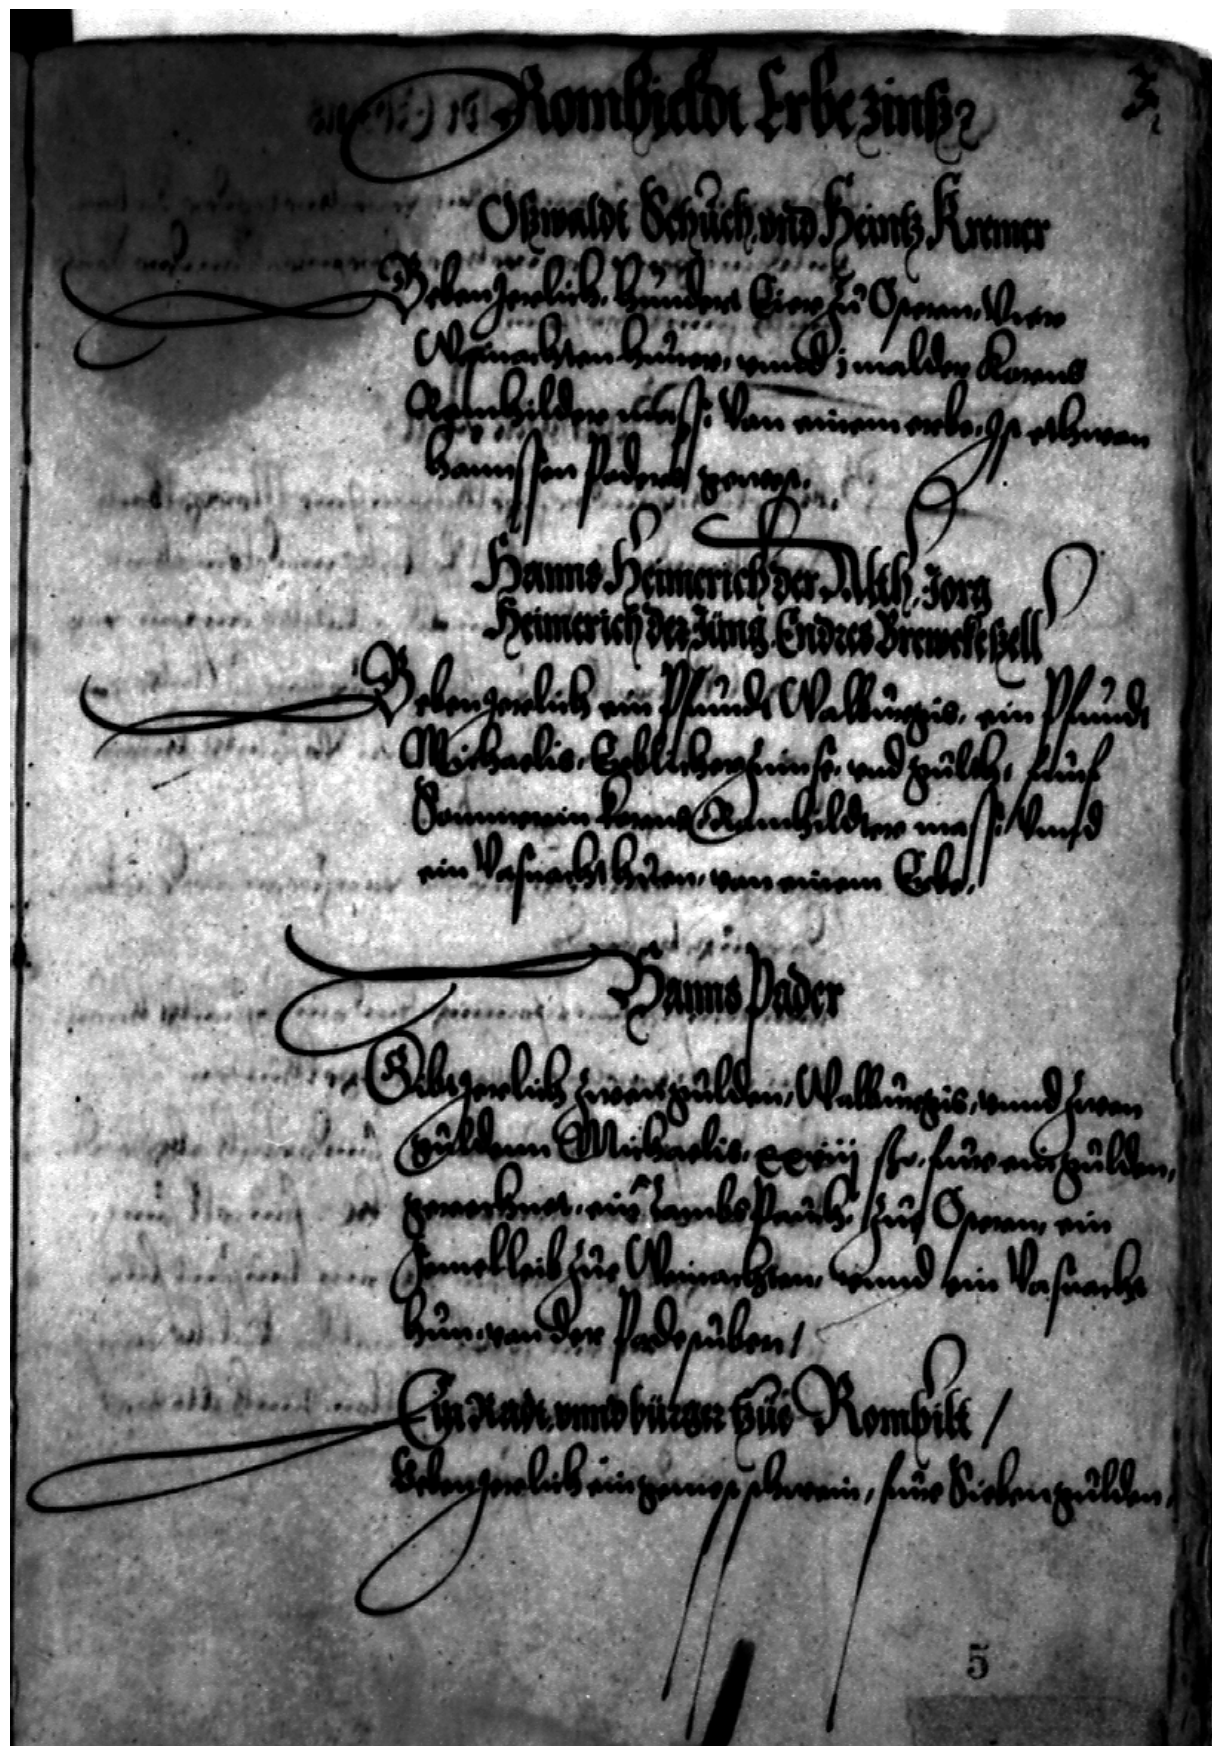 Rombildt Erbezinß
3
Oßwaldt Schuch vnd Heintz Kremer
Geben Jerlich, hundert Eier zu Ostern, Vier
Weinachten huner, vnnd j malder Korns
Romhilder mass, Von einem erbe, Ist ethwan
hannssen Paders gewest.
Hanns Heimerich der Alth, Jorg
Heimerich der Jung, Endres
Geben Jerlich ein Pfundt Walburgis, ein Pfundt
Michaelis, Erblicher zinnse, vnd gulth, funf
Sommerin korns Romhildter mass, Vnnd
ein Vasnacht huen, von einem Erbe,
Hanns Pader
Gibt Jerlich zwen gulden, Walburgis, vnnd zwen
guldenn Michaelis, xxviij für ein gulden,
gerechnet, ein Lambs Pauch, zur Ostern, ein
Semelleib zur Weinachten, vnnd ein Vasnacht
hun, von der Padestuben /
Ein Radt vnnd bürger zue Romhilt /
Geben Jerlich ein gemest schwein, fur Sieben gulden,
5